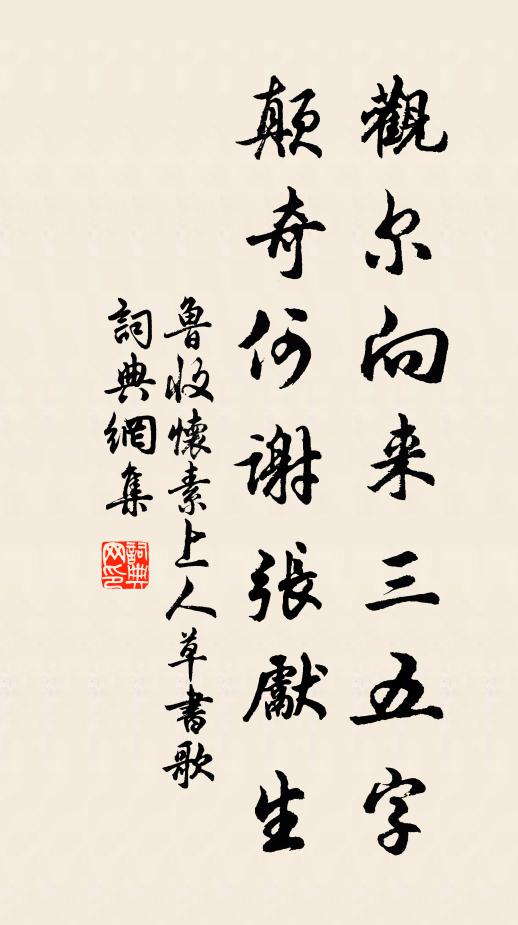 觀尔向来三五字
顛奇何謝張獻生
魯收懷素上人草書歌
詞典網集
詞典
网印